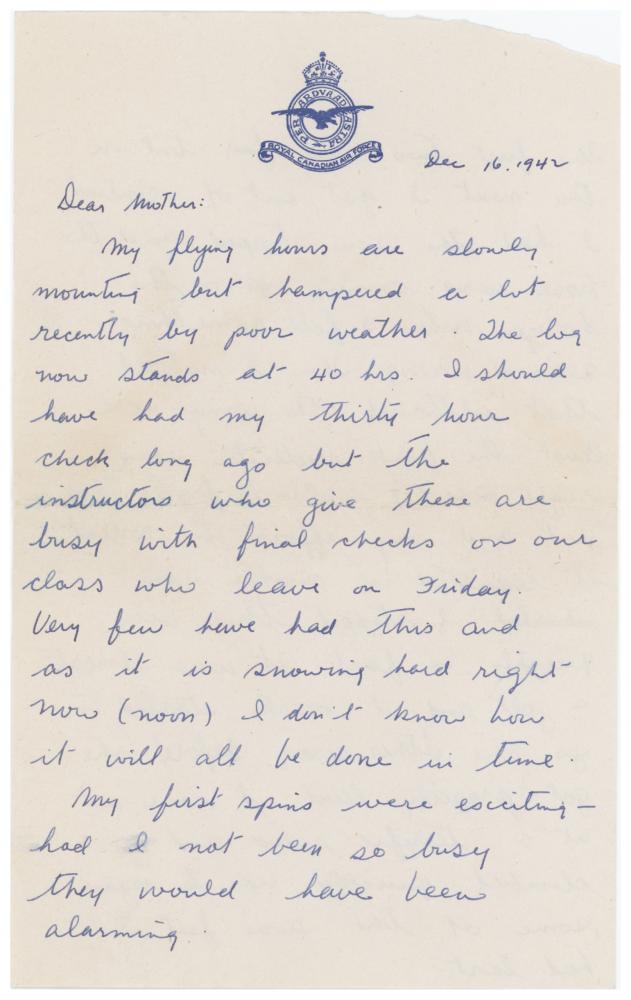 PER ARDVA AD ASTRA
ROYAL CANADIAN AIR FORCE
Dec 16. 1942
Dear Mother:
My flying hours are slowly
mounting but hampered a lot
recently by poor weather. The log
now stands at 40 hrs. I should
have had my thirty hour
check long ago but the
instructors who give these are
busy with final checks on our
class who leave on Friday.
Very few have had this and
as it is snowing hard right
now (noon) I don't know how
it will all be done in time.
My first spins were exciting –
had I not been so busy
they would have been
alarming.